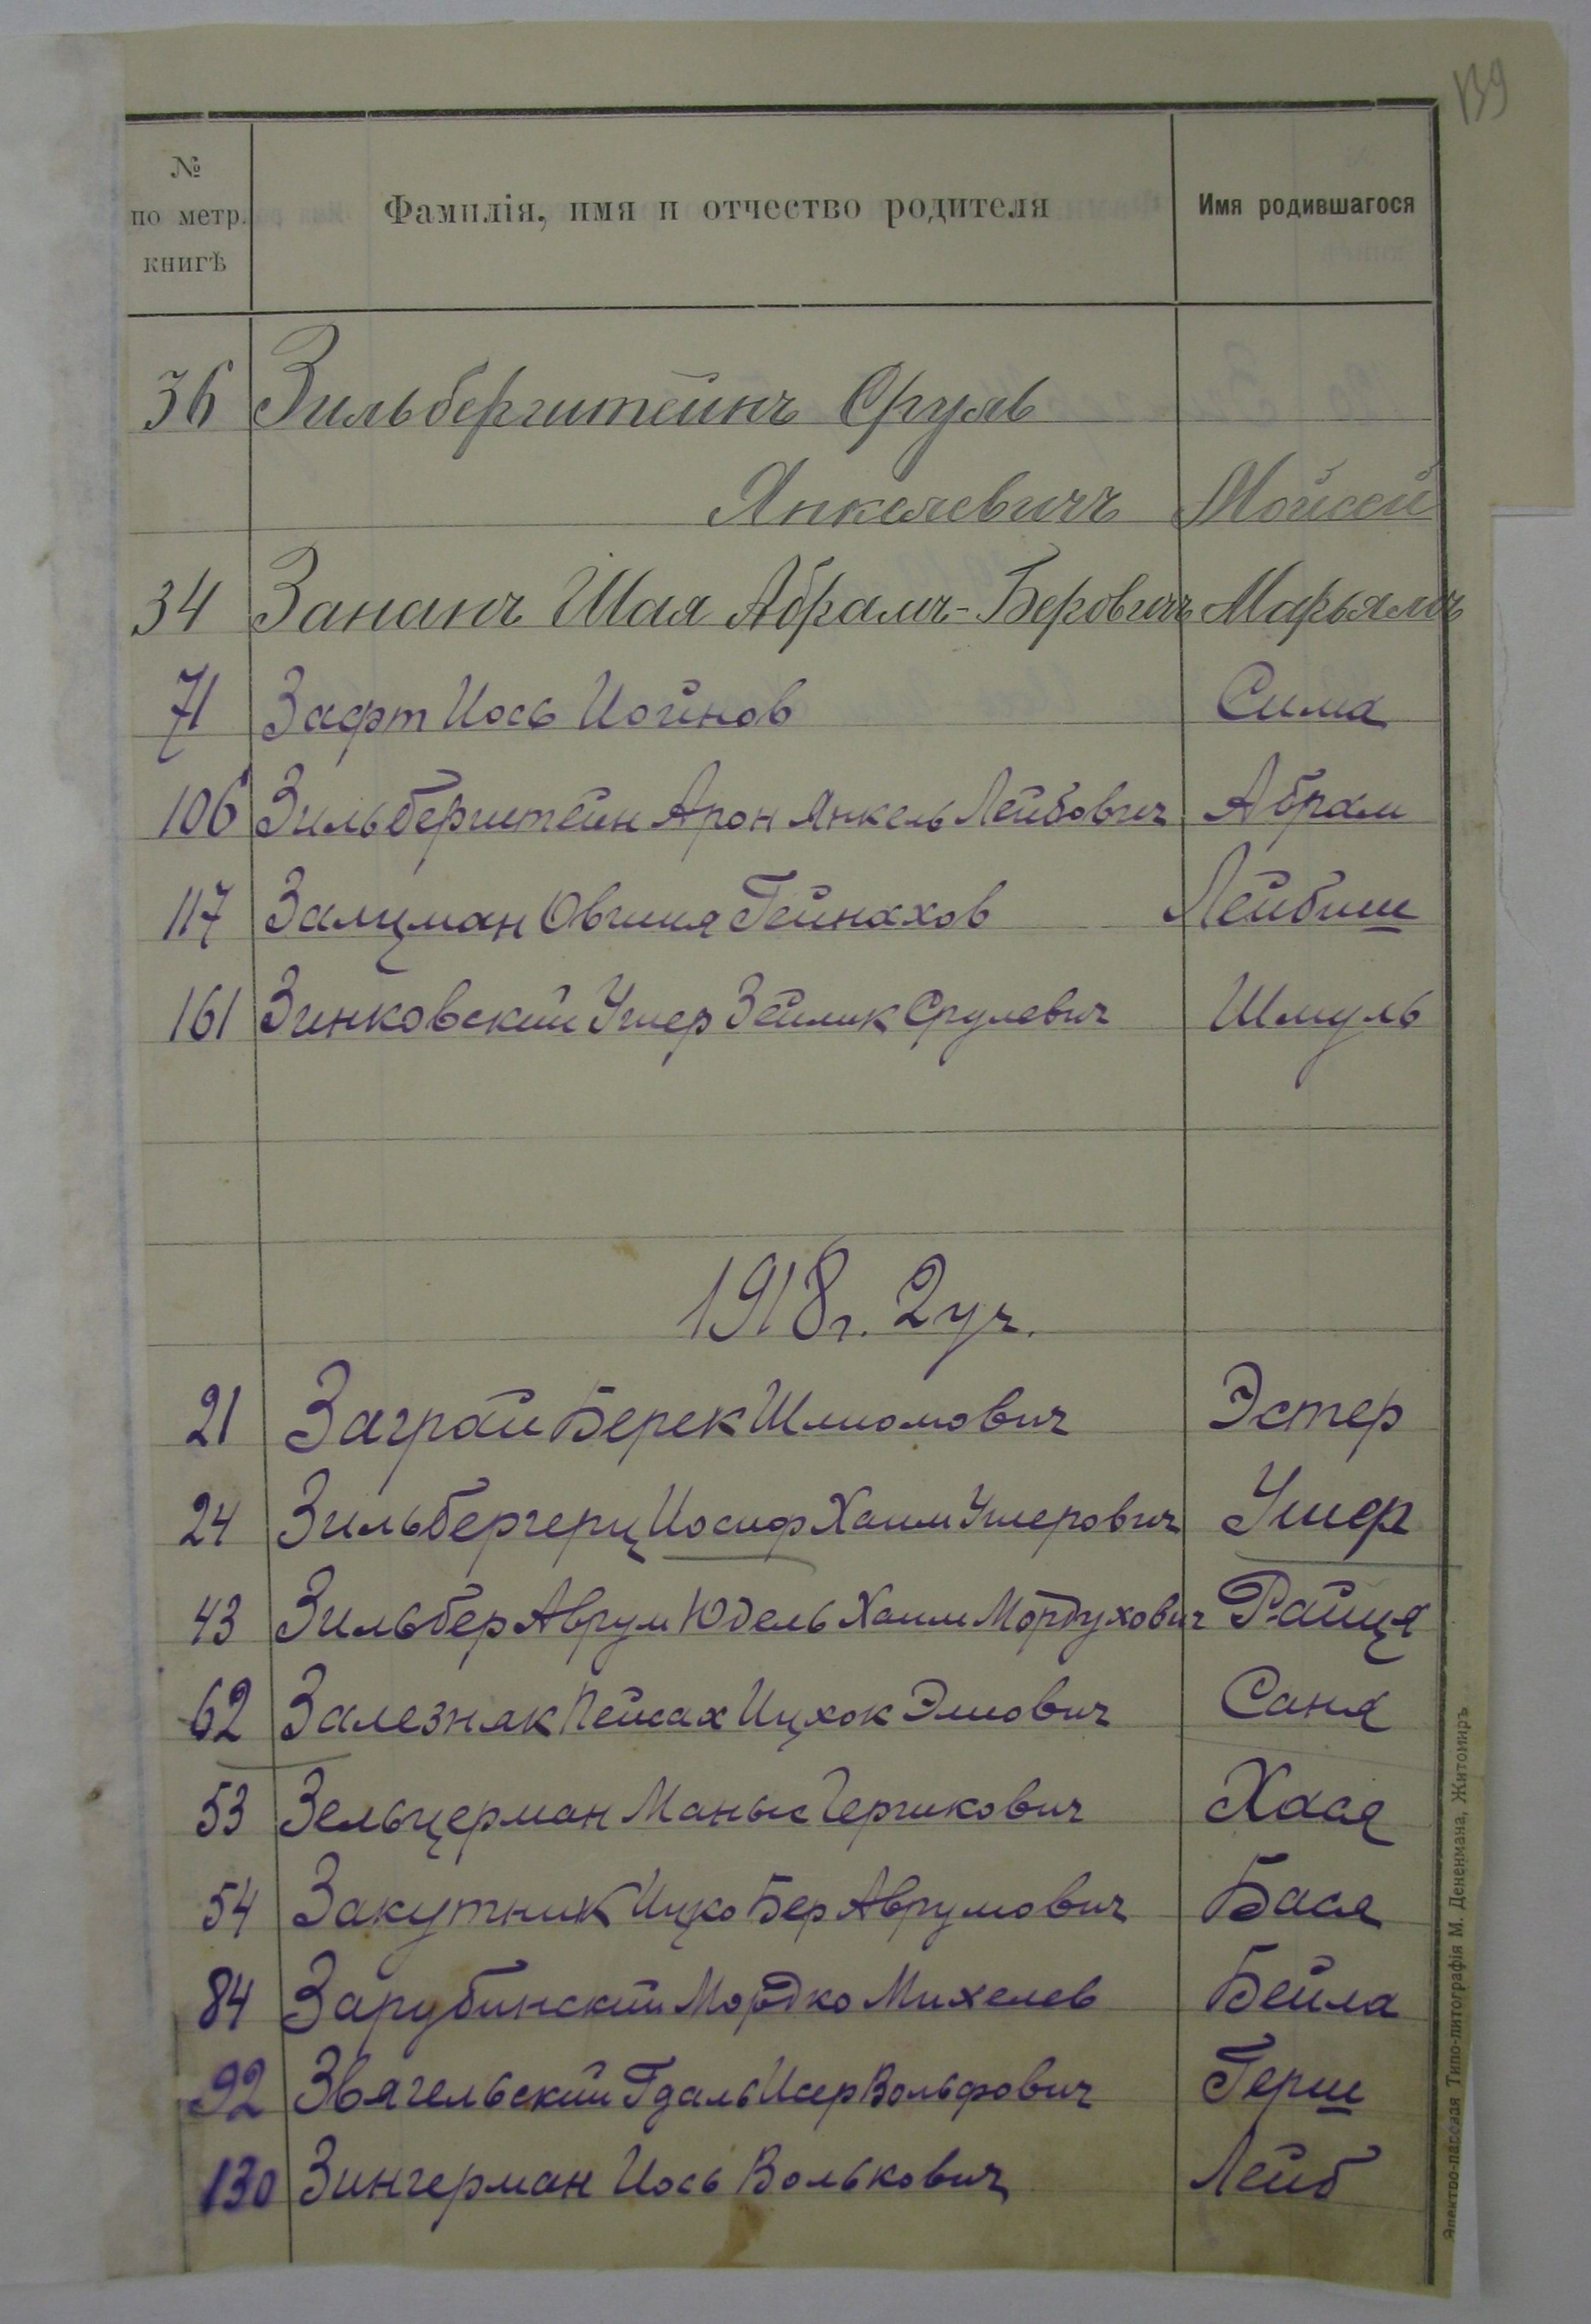 139
№ по метр. книгѣ Фамилія, имя и отчество родителя Имя родившагося
36 Зильберштейнъ Сруль
Янкелевичъ Мойсей
34 Зананъ Шая Абрамъ-Беровичъ Марьямъ
71 Зафт Иось Иойнов Сима
106 Зильберштейн Арон Янкель Лейбович Абрам
117 Залцман Овшия Гейнахов Лейбиш
161 Зинковский Ушер Зейлик Срулевич Шмуль
1918 г. 2 уч.
21 Заграй Берек Шлиомович Эстер
24 Зильбергерц Иосиф Хаим Ушерович Ушер
43 Зильбер Аврум Юдель Хаим Мордухович Райця
62 Залезняк Пейсах Ицхок Элиович Саня
53 Зельцерман Маныс Гершкович Хася
54 Закутник Ицко Бер Аврумович Бася
84 Зарубинский Мордко Михелев Бейла
92 Звягельский Гдаль Исер Вольфович Герш
130 Зингерман Иось Волькович Лейб
Электро-паровая Типо-литографія М. Дененмана, Житомиръ